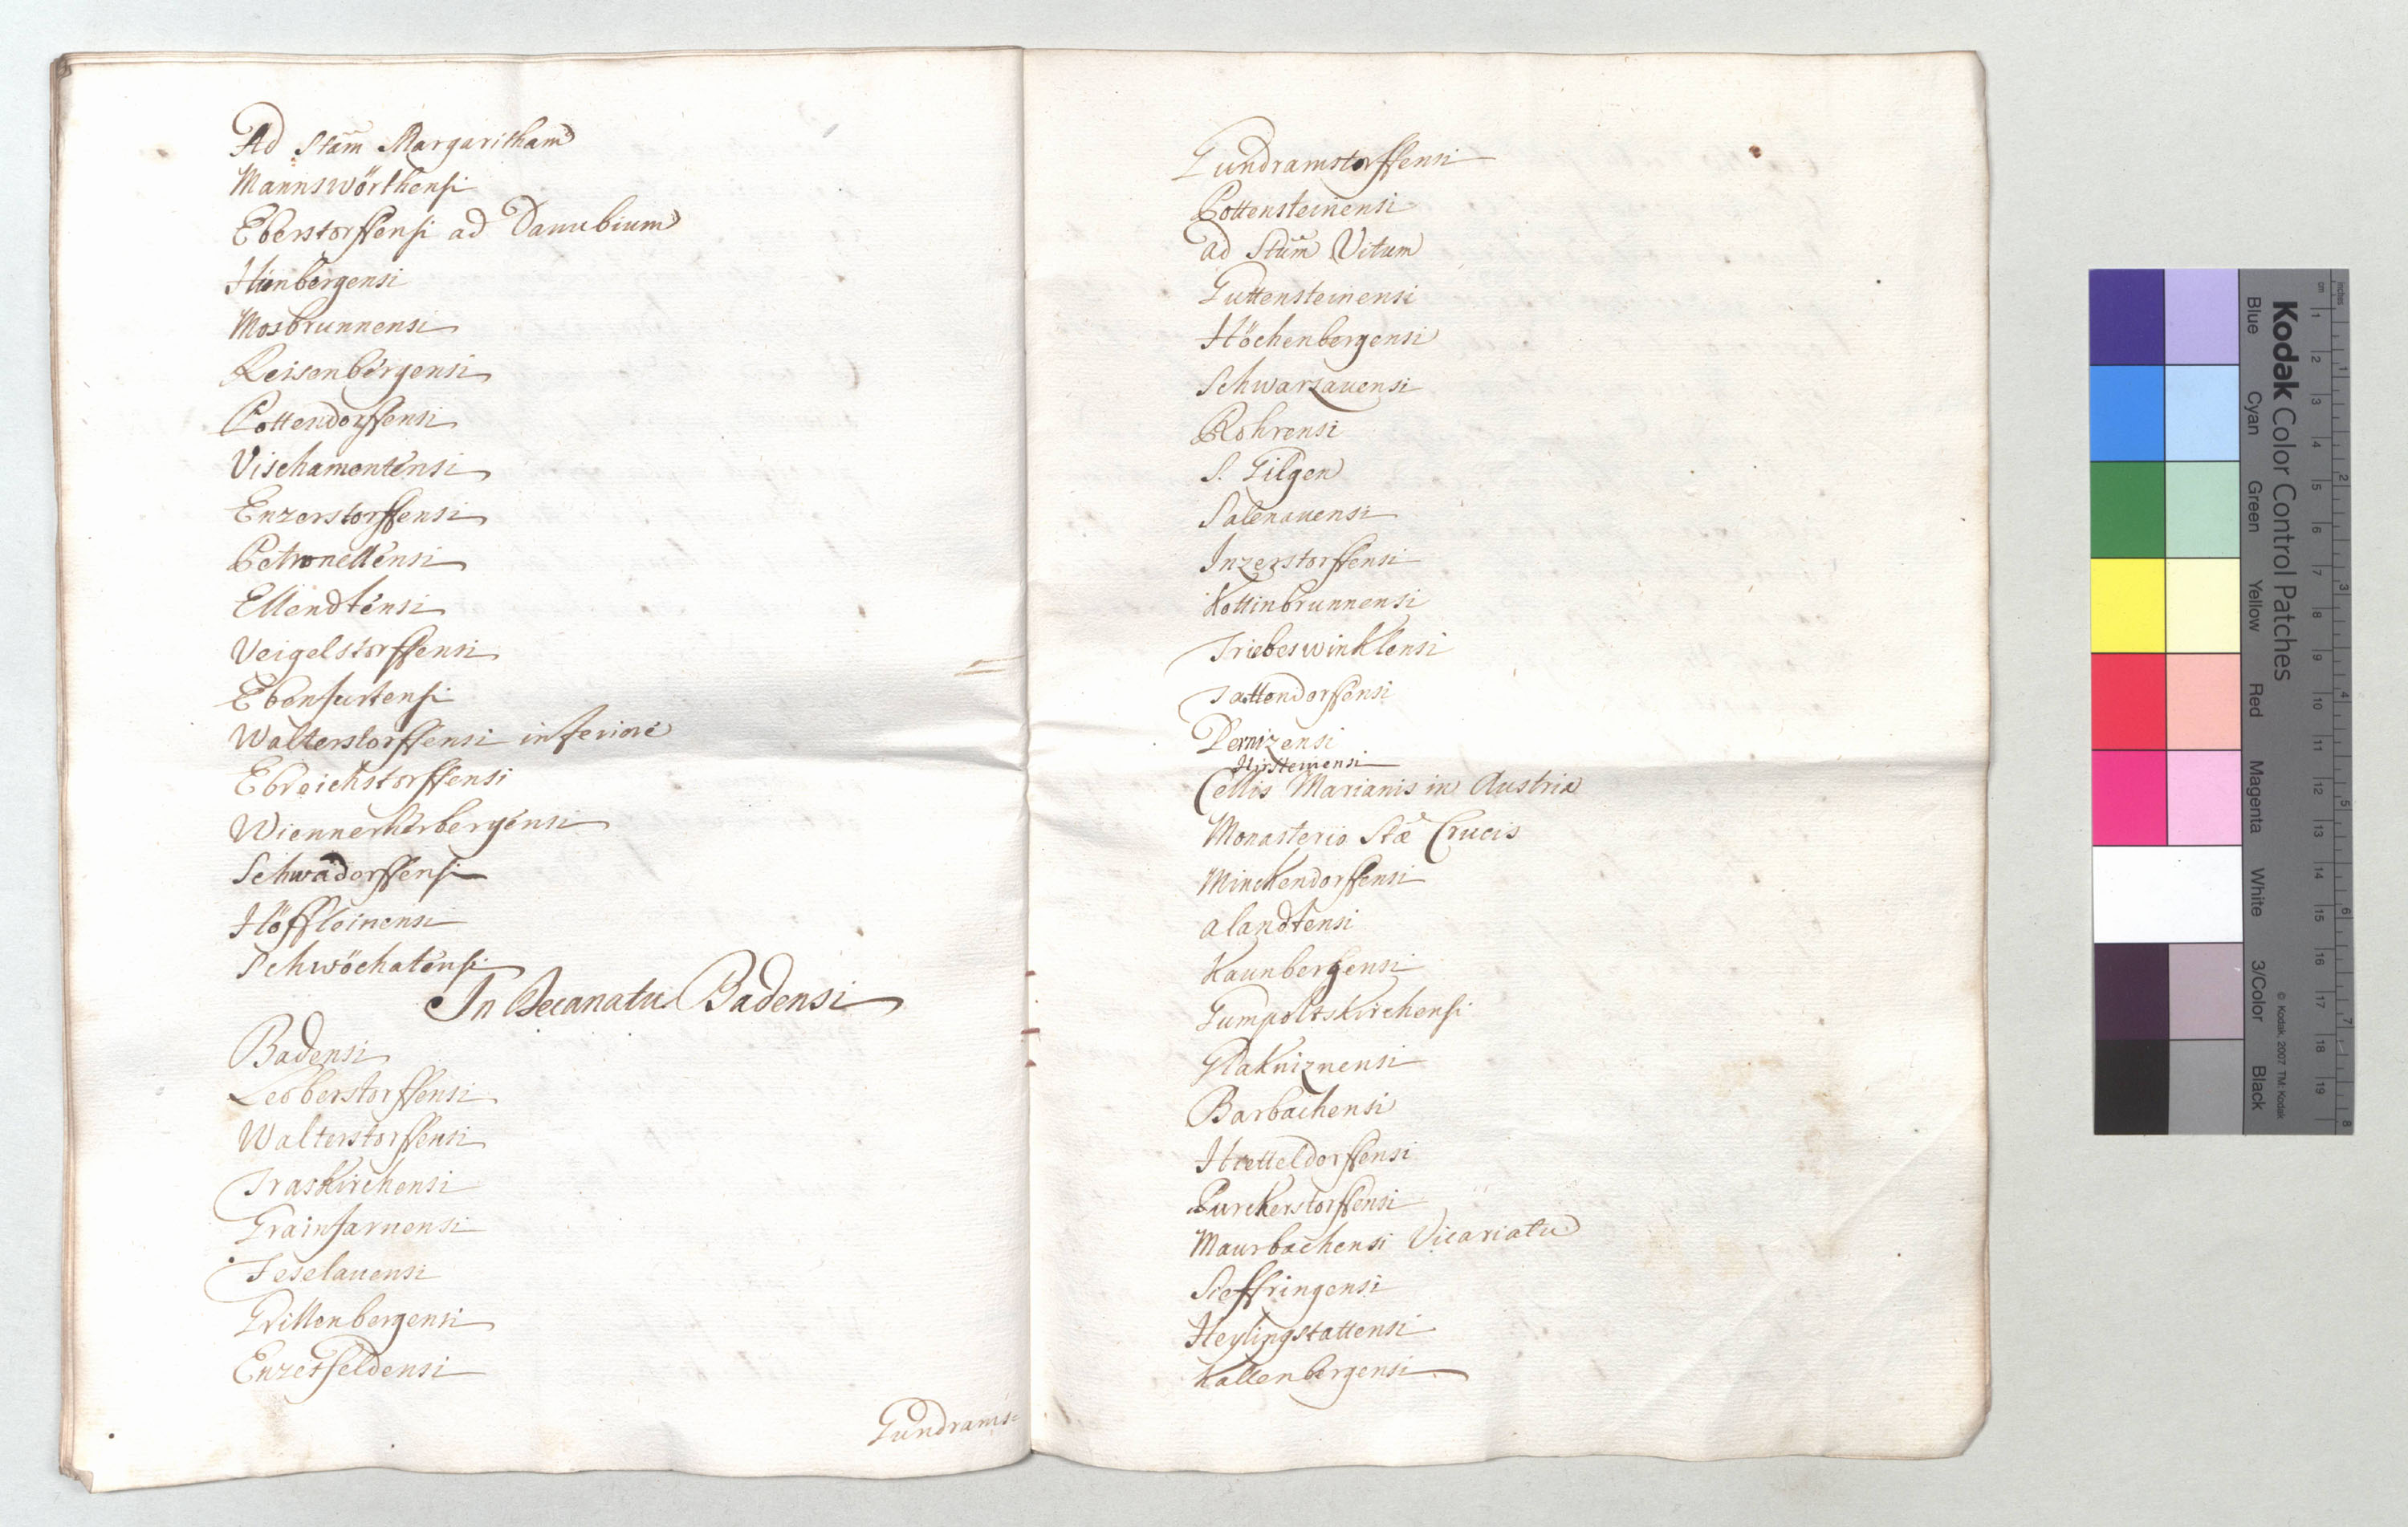 Ad Stam Margaritham
Mannswörthensi
Eberstorffensi ad Danubium
Himbergensi
Mosbrunnensi
Reisenbergensi
Pottendorffensi
Vischamentensi
Enzerstorffensi
Petronellensi
Ellendtensi
Veigelstorffensi
Ebenfurtensi
Walterstorffensi inferiore
Ebreichstorffensi
Wiennerherbergensi
Schwadorffensi
Höffleinensi
Schwöchatensi
In Decanatu Badensi
Badensi
Leoberstorffensi
Walterstorffensi
Traskirchensi
Grainfarnensi
Teselauensi
Grillenbergensi
Enzesfeldensi
Gundrams=
Gundramstorffensi
Pottensteinensi
ad Stum Vitum
Guttensteinensi
Höchenbergensi
Schwarzauensi
Rohrensi
S. Gilgen
Salenauensi
Inzerstorffensi
Kottinbrunnensi
Triebeswinklensi
Tattendorffensi
Pernizensi
Hirsteinensi
Cellis Marianis in Austria
Monasterio Stæ Crucis
Minckendorffensi
alandtensi
Kaunbergensi
Gumpoltskirchensi
Glakniznensi
Barbachensi
Hietteldorffensi
Purckerstorffensi
Maurbachensi Vicariatu
Sieffringensi
Heylingstattensi
Kallenbergensi
Kodak Color Control Patches
Blue Cyan Green Yellow Red Magenta White 3/Color Black
© Kodak, 2007 TM: Kodak
inches 1 2 3 4 5 6 7 8
cm 1 2 3 4 5 6 7 8 9 10 11 12 13 14 15 16 17 18 19